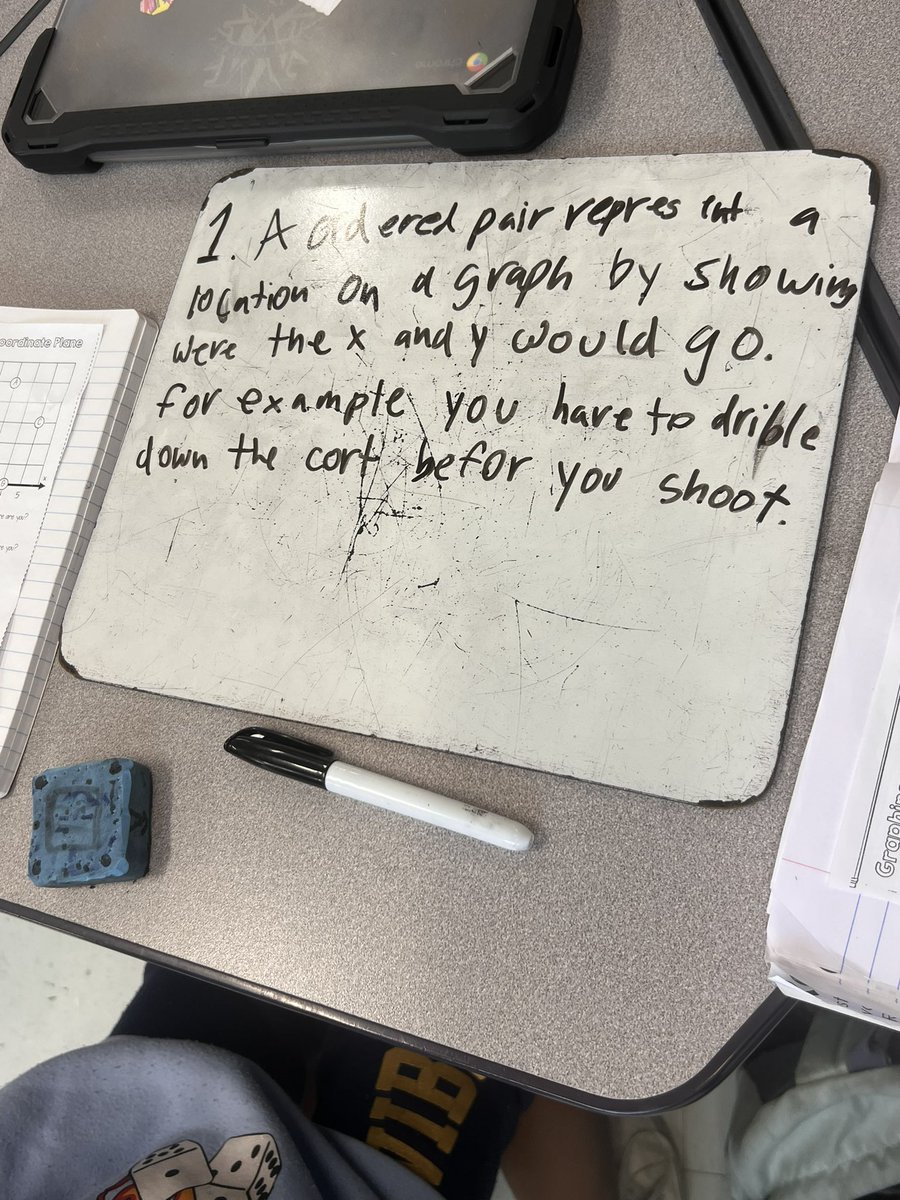 1. A ordered pair represent a
location on a graph by showing
were the x and y would go.
for example you have to drible
down the cort befor you shoot.
oordinate Plane
5
x
re are you?
re you?
chrome
Graphing